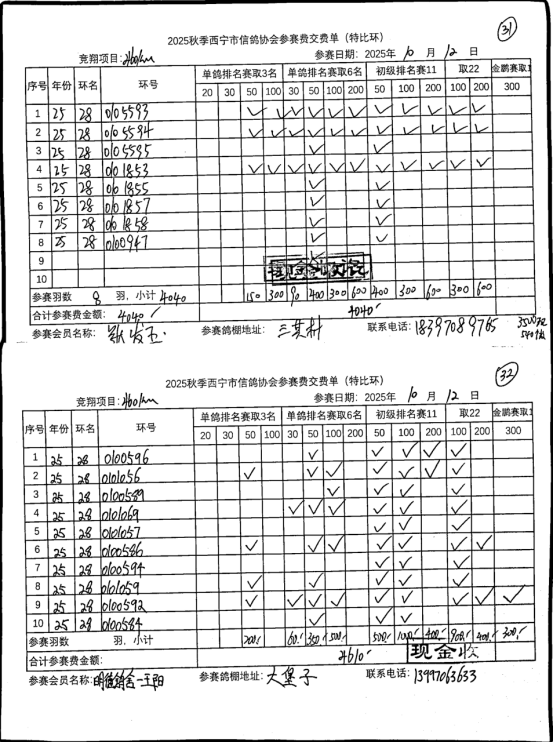 31
2025秋季西宁市信鸽协会参赛费交费单（特比环）
竞翔项目：260km 参赛日期：2025年 10 月 12 日
序号 年份 环名 环号 单鸽排名赛取3名 单鸽排名赛取6名 初级排名赛11 取22 金鹏赛取1
20 30 50 100 30 50 100 200 50 100 200 100 200 300
1 25 28 0105593 ✓ ✓ ✓ ✓ ✓ ✓ ✓ ✓ ✓ ✓ ✓
2 25 28 0105594 ✓ ✓ ✓ ✓ ✓ ✓ ✓ ✓ ✓ ✓ ✓
3 25 28 0105595 ✓ ✓
4 25 28 0101853 ✓ ✓ ✓ ✓ ✓ ✓ ✓ ✓ ✓ ✓ ✓
5 25 28 0101855 ✓ ✓
6 25 28 0101857 ✓ ✓
7 25 28 0101858 ✓ ✓
8 25 28 0100947 ✓ ✓
9
10
参赛羽数 8 羽、小计 4040 150 300 90 400 300 600 400 300 600 300 600
合计参赛费金额： 4040 4040
参赛会员名称： 参赛鸽棚地址： 三其村 联系电话：18397089765
32
2025秋季西宁市信鸽协会参赛费交费单（特比环）
竞翔项目：260km 参赛日期：2025年 10 月 12 日
序号 年份 环名 环号 单鸽排名赛取3名 单鸽排名赛取6名 初级排名赛11 取22 金鹏赛取1
20 30 50 100 30 50 100 200 50 100 200 100 200 300
1 25 28 0100596 ✓ ✓ ✓ ✓ ✓
2 25 28 0101056 ✓ ✓ ✓ ✓ ✓ ✓ ✓
3 25 28 0100589 ✓ ✓ ✓ ✓
4 25 28 0101069 ✓ ✓ ✓ ✓ ✓ ✓
5 25 28 0101057 ✓ ✓ ✓
6 25 28 0100586 ✓ ✓ ✓ ✓ ✓ ✓ ✓
7 25 28 0100594 ✓ ✓ ✓
8 25 28 0101059 ✓ ✓ ✓ ✓ ✓
9 25 28 0100592 ✓ ✓ ✓ ✓ ✓ ✓ ✓ ✓ ✓
10 25 28 0100584 ✓ ✓ ✓
参赛羽数 羽、小计 200 60 350 500 500 1000 400 900 400 300
合计参赛费金额： 4610 现金收
参赛会员名称： 王阳 参赛鸽棚地址：大堡子 联系电话：13997063633